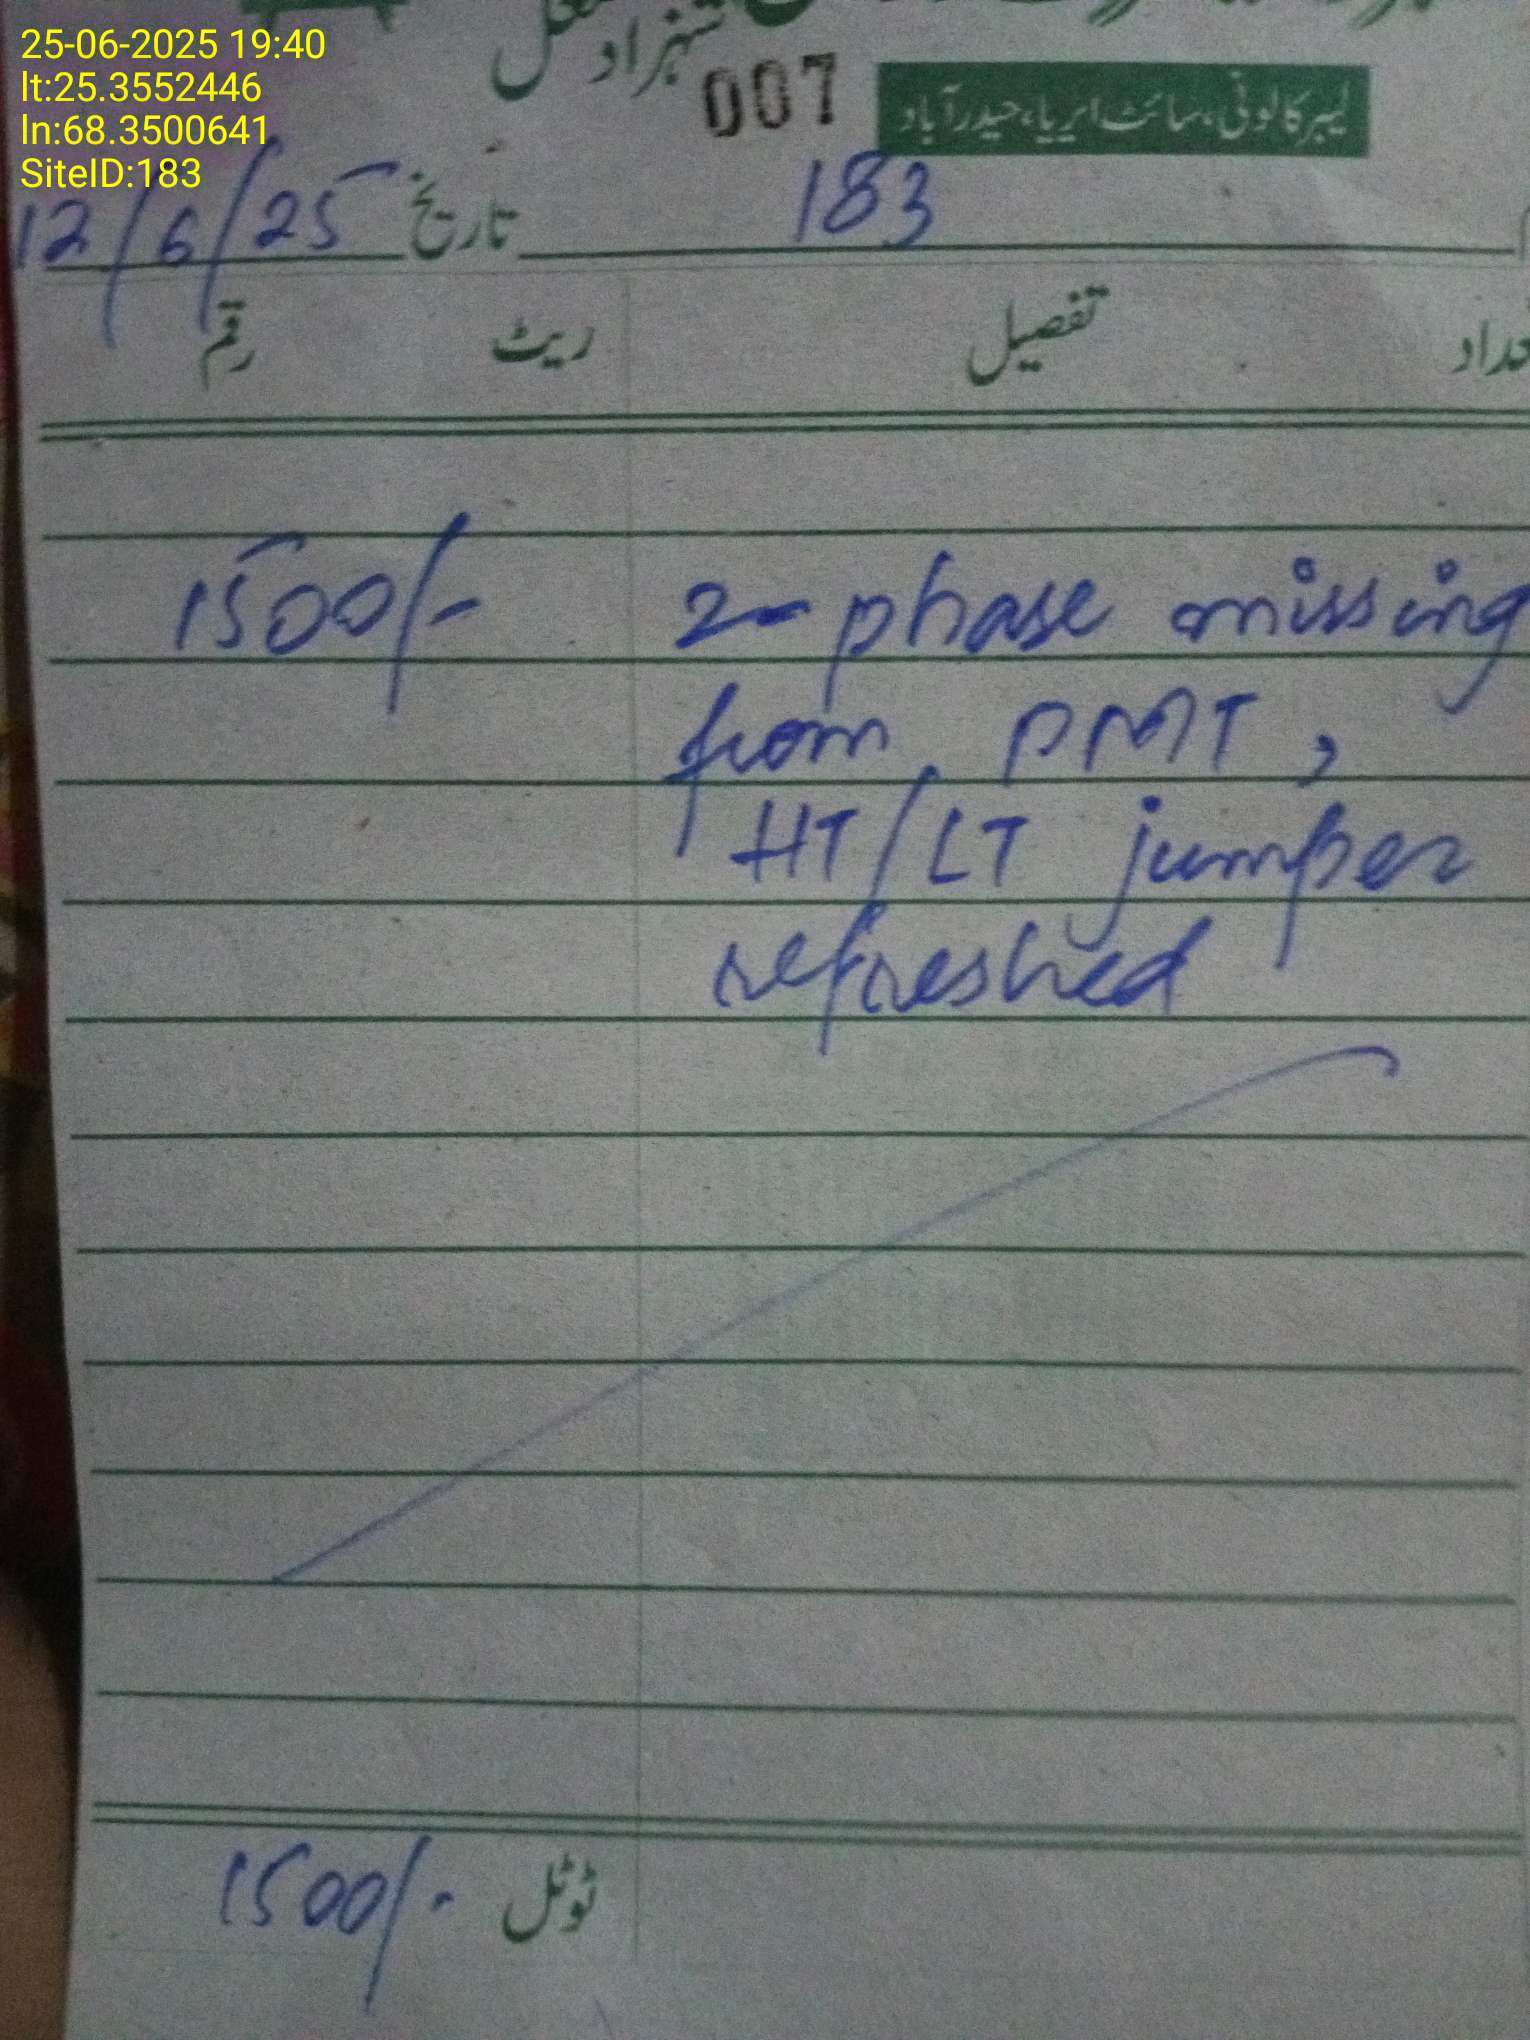 25-06-2025 19:40
lt:25.3552446
ln:68.3500641
SiteID:183
شہزاد
007
لیبر کالونی، سائٹ ایریا، حیدرآباد
183
تاریخ 12/6/25
تفصیل ریٹ رقم
2-phase missing 1500/-
from PMT,
HT/LT jumper
refreshed
ٹوٹل 1500/-